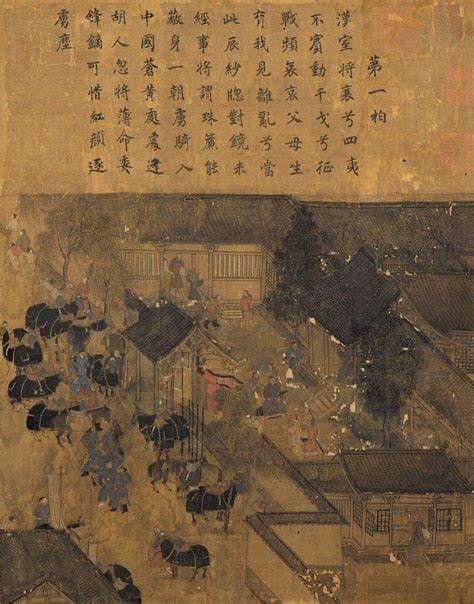 第一拍
漢室將衰兮四夷
不賓動干戈兮征
戰頻哀哀父母生
育我見離亂兮當
此辰紗窗對鏡未
經事將謂珠簾能
蔽身一朝虜騎入
中國蒼黃處處逢
胡人忽將薄命委
鋒鏑可惜紅顏逐
虜塵